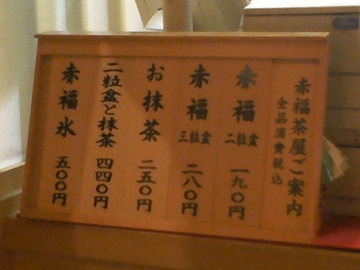 赤福茶屋ご案内
全品消費税込
赤福 二粒盆 一九〇円
赤福 三粒盆 二八〇円
お抹茶 二五〇円
二粒盆と抹茶 四四〇円
赤福氷 五〇〇円